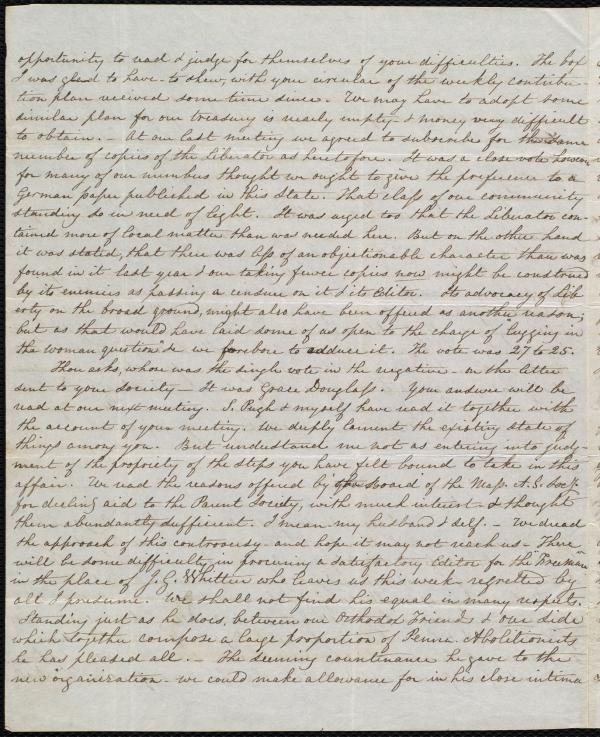 opportunity to read & judge for themselves of your difficulties. The box
I was glad to have - to shew, with your circular of the weekly contribu-
tion plan received some time since. We may have to adopt some
similar plan for our treasury is nearly empty, & money very difficult
to obtain. - At our last meeting we agreed to subscribe for the same
number of copies of the Liberator as heretofore. It was a close vote however,
for many of our members thought we ought to give the preference to a
German paper published in this State. That class of our community
standing so in need of light. It was urged too that the Liberator con-
tained more of local matter than was needed here. But on the other hand
it was stated, that there was less of an objectionable character than was
found in it last year & our taking fewer copies now might be construed
by its enemies as passing a censure on it & its Editor. Its advocacy of Lib-
erty on the broad ground, might also have been offered as another reason;
but as that would have laid some of us open to the charge of lugging in
the woman question" &c we forebore to adduce it. The vote was 27 to 25.
Thou asks, whose was the single vote in the negative - on the letter
sent to your society - It was Grace Douglass. Your answer will be
read at our next meeting. S. Pugh & myself have read it together with
the account of your meeting. We deeply lament the existing state of
things among you. But understand me not as entering into judg-
ment of the propriety of the steps you have felt bound to take in this
affair. We read the reasons offered by the Board of the Mass. A. S. Socy.
for declin'g aid to the Parent Society, with much interest & thought
them abundantly sufficient. I mean my husband & self. - We dread
the approach of this controversy - and hope it may not reach us - There
will be some difficulty in procuring a satisfactory Editor for the "Freeman"
in the place of J. G. Whittier who leaves us this week - regretted by
all I presume. We shall not find his equal in many respects.
Standing just as he does, between our Orthodox Friends & our side
which together compose a large proportion of Penna. Abolitionists
he has pleased all. - The seeming countenance he gave to the
new organization - we could make allowance for in his close intima